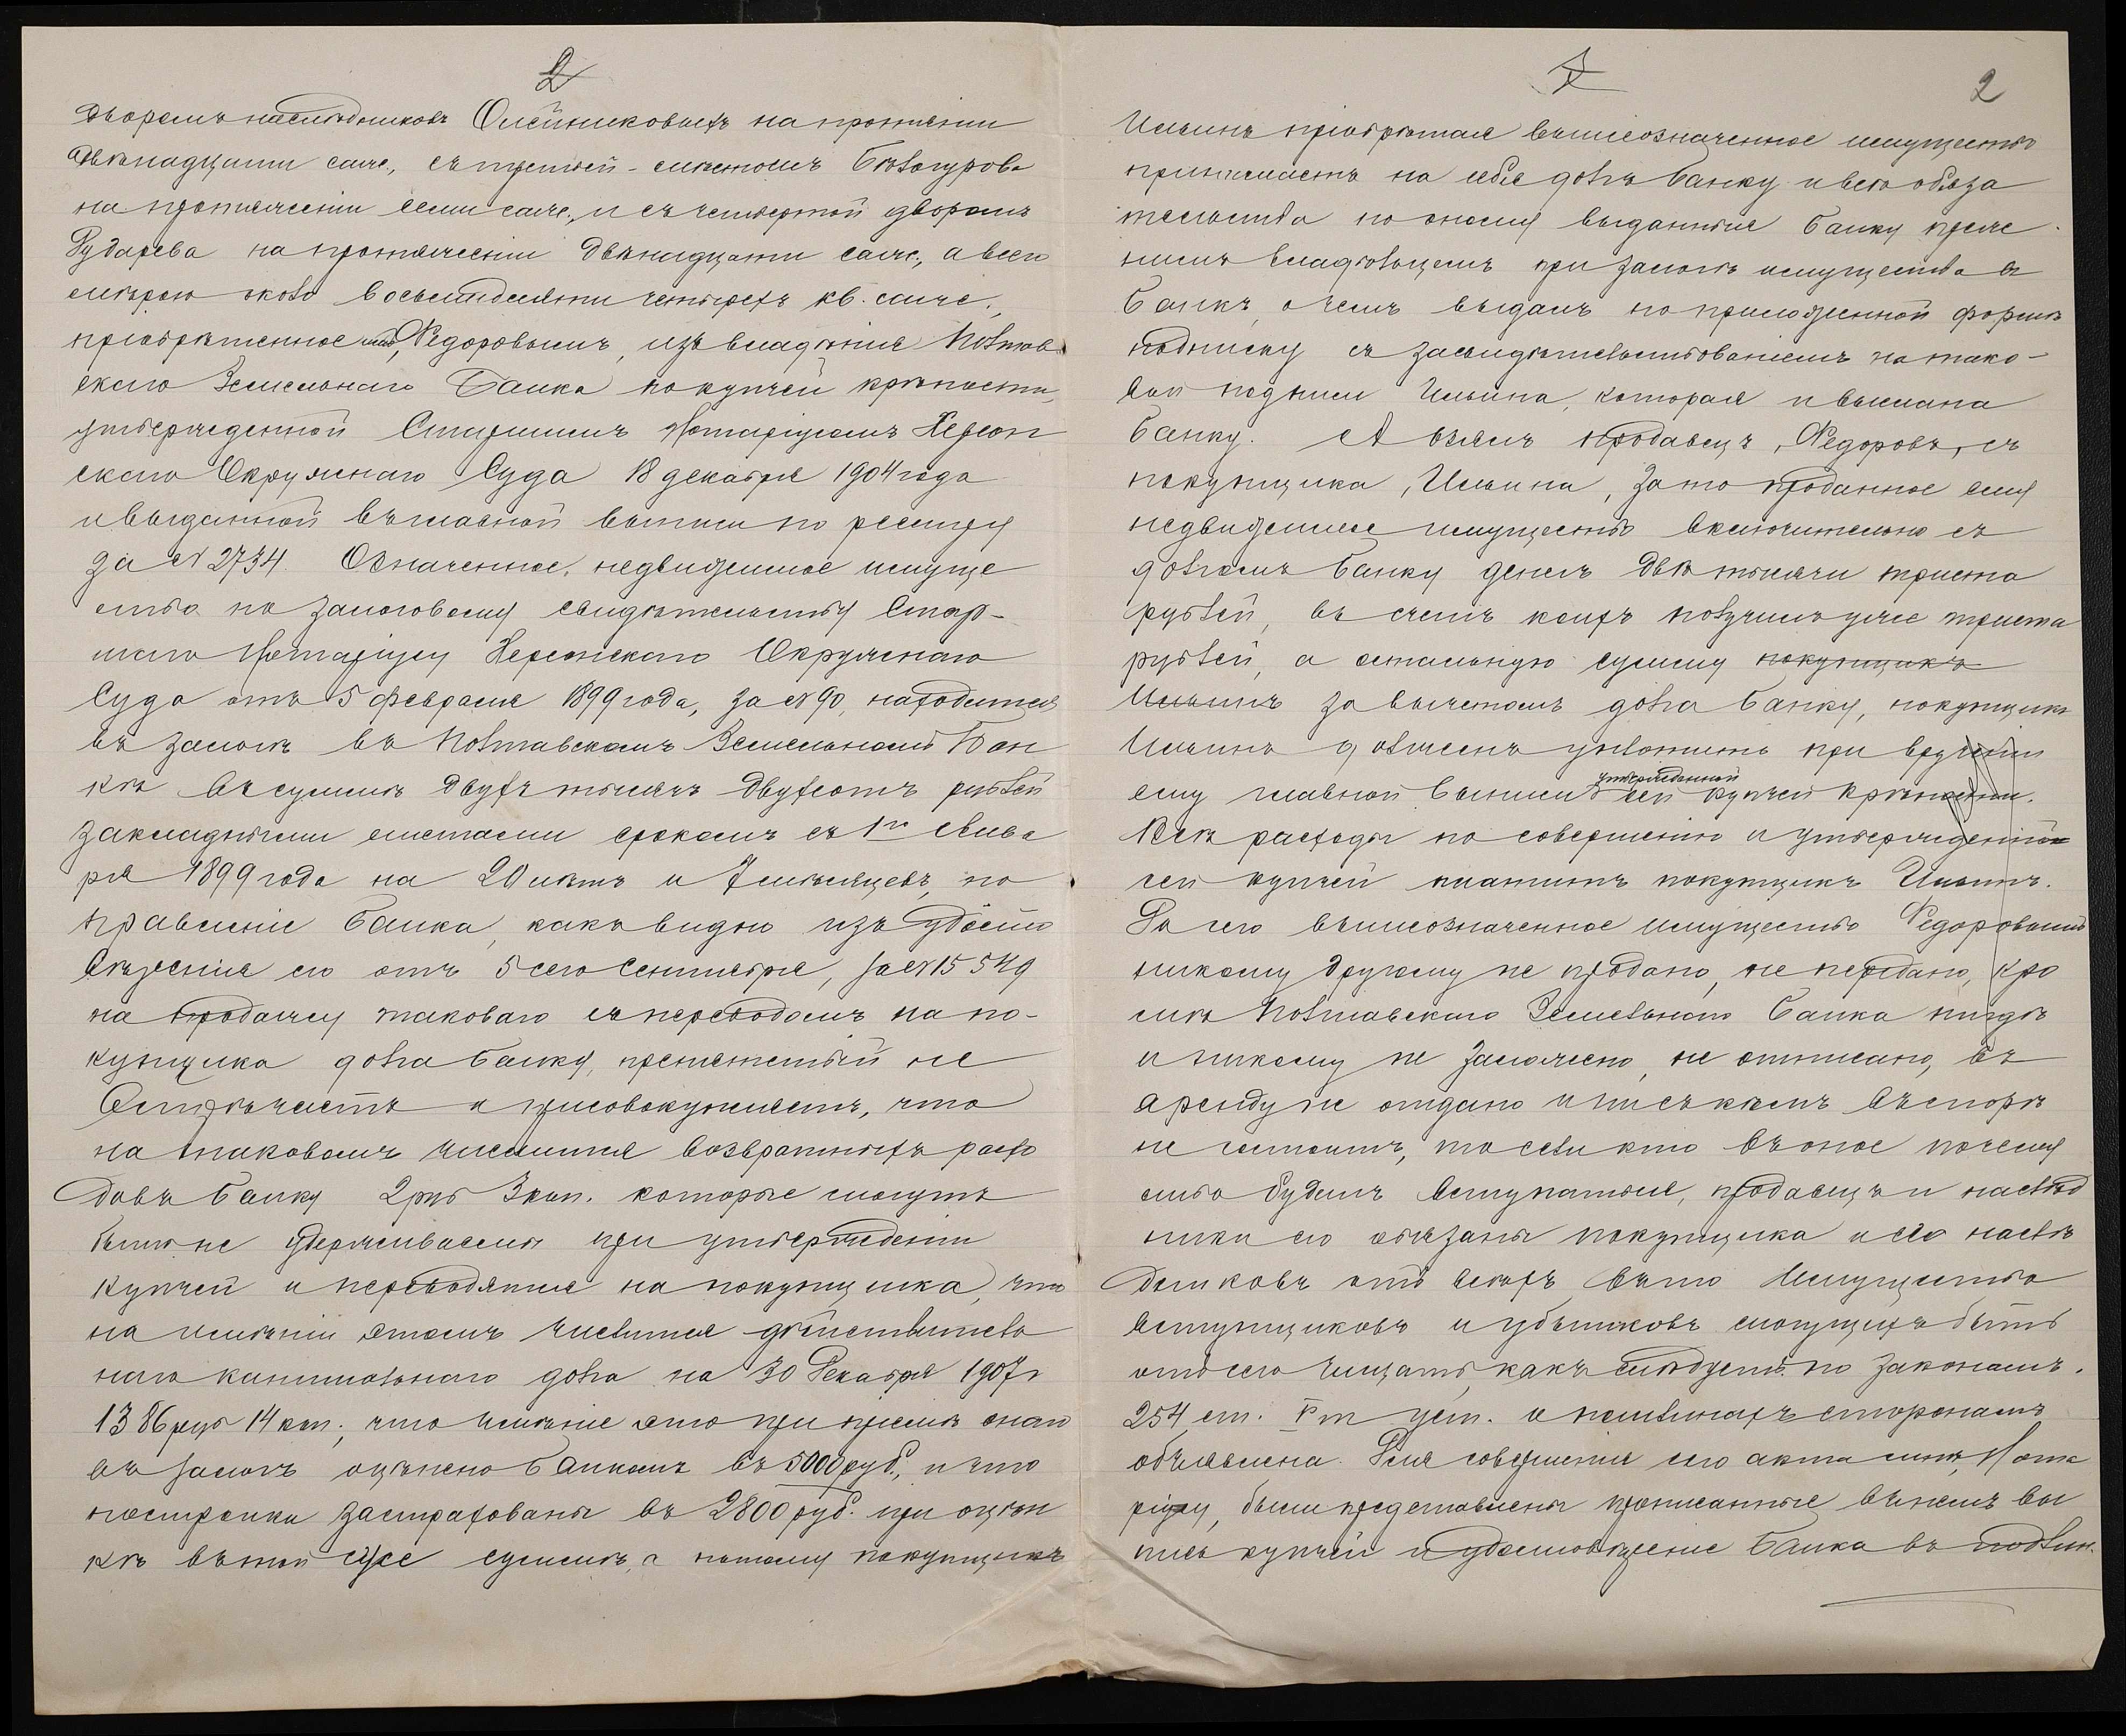 2
дворомъ наслѣдниковъ Олейниковыхъ на протяженіи
двѣнадцати саж., съ третьей - смѣтомъ Бѣлогурова
на протяженіи семи саж., и съ четвертой дворомъ
Рударева на протяженіи двѣнадцати саж., а всего
мѣрою около восьмидесяти четырехъ кв. саж.,
пріобрѣтенное имъ, Ѳедоровымъ, изъ владѣнія Полтав
скаго Земельнаго Банка по купчей крѣпости,
утвержденной Старшимъ Нотаріусомъ Херсон
скаго Окружнаго Суда 18 декабря 1904 года
и выданной въ главной выписи по реестру
за № 2734. Означенное недвижимое имуще
ство по залоговому свидѣтельству Стар-
шаго Нотаріуса Херсонскаго Окружнаго
Суда отъ 5 февраля 1899 года, за № 90, находится
въ залогѣ въ Полтавскомъ Земельномъ Бан
кѣ въ суммѣ двухъ тысячъ двухсотъ рублей
закладными листами срокомъ съ 1го Янва
ря 1899 года на 20 лѣтъ и 7 мѣсяцевъ, но
правленіе Банка, какъ видно изъ удосто
вѣренія его отъ 5 сего Сентября, за № 15549
на продажу таковаго съ переводомъ на по-
купщика долга Банку, препятствій не
встрѣчаетъ и присовокупляетъ, что
на таковомъ числится возвратныхъ расхо
довъ Банку 2 руб 3 коп. которые могутъ
быть не удерживаемы при утвержденіи
купчей и переводятся на покупщика, что
на имѣніи этомъ числится дѣйствитель
наго капитальнаго долга на 30 Декабря 1907 г
1386 руб 14 коп., что имѣніе это при пріемѣ онаго
въ залогъ оцѣнено Банкомъ въ 5000 руб., и что
постройки застрахованы въ 2800 руб. при оцѣн
кѣ въ той же суммѣ, а потому покупщикъ
1
2
Ильинъ пріобрѣтая вышеозначенное имущество
принимаетъ на себя долгъ Банку и всѣ обяза
тельства по оному выданныя Банку преж
нимъ владѣльцемъ при залогѣ имущества въ
Банкѣ, о чемъ выдалъ по приложенной формѣ
подписку съ засвидѣтельствованіемъ на тако-
вой подписи Ильина, которая и выслана
Банку. А взялъ продавецъ, Ѳедоровъ, съ
покупщика, Ильина, за то проданное ему
недвижимое имущество включительно съ
долгомъ Банку денегъ двѣ тысячи триста
рублей, въ счетъ коихъ получилъ уже триста
рублей, а остальную сумму покупщикъ
Ильинъ за вычетомъ долга Банку, покупщикъ
Ильинъ долженъ уплотить при врученіи
ему главной выписи утвержденной сей купчей крѣпости.
Всѣ расходы по совершенію и утвержденію
сей купчей платитъ покупщикъ Ильинъ.
До сего вышеозначенное имущество Ѳедоровымъ
никому другому не продано, не передано, кро
мѣ Полтавскаго Земельнаго Банка нигдѣ
и никому не заложено, не отписано, въ
аренду не отдано и ни съ кѣмъ въ спорѣ
не состоитъ, то если кто въ оное почему
либо будетъ вступаться, продавецъ и наслѣд
ники его обязаны покупщика и его наслѣ
дниковъ отъ всѣхъ въ то имущество
вступщиковъ и убытковъ могущихъ быть
отъ сего чищать, какъ слѣдуетъ по законамъ.
254 ст. V т уст. о пошлинахъ сторонамъ
объявлена. Для совершенія сего акта мнѣ, Нота
ріусу, были представлены прописанные въ немъ вы
пись купчей и удостовѣреніе Банка въ подлин.